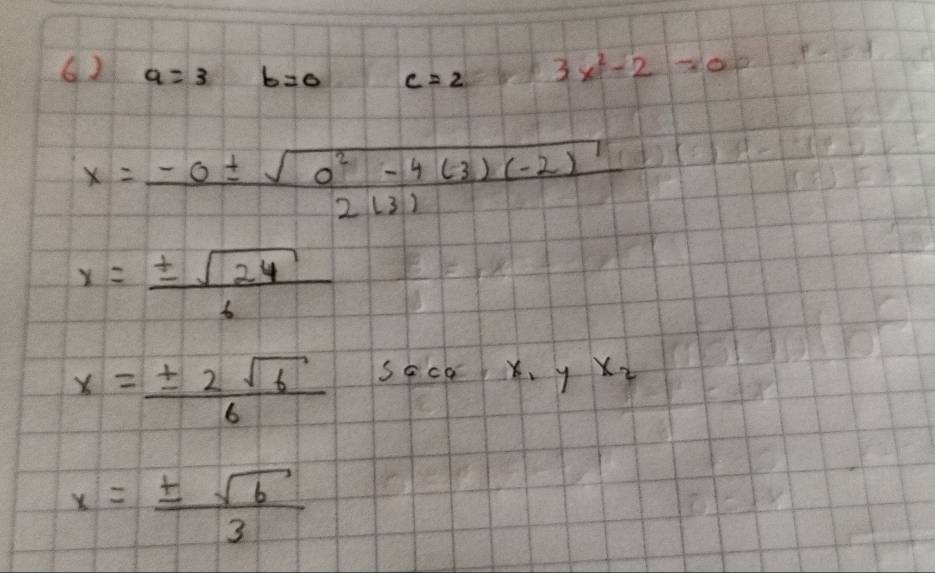 6) a=3 b=0 c=2 3x²-2 =0
x = (-0 ± √(0² -4(3)(-2))) / 2(3)
x = ±√24 / 6
x = ±2√6 / 6 saca x₁ y x₂
x = ±√6 / 3